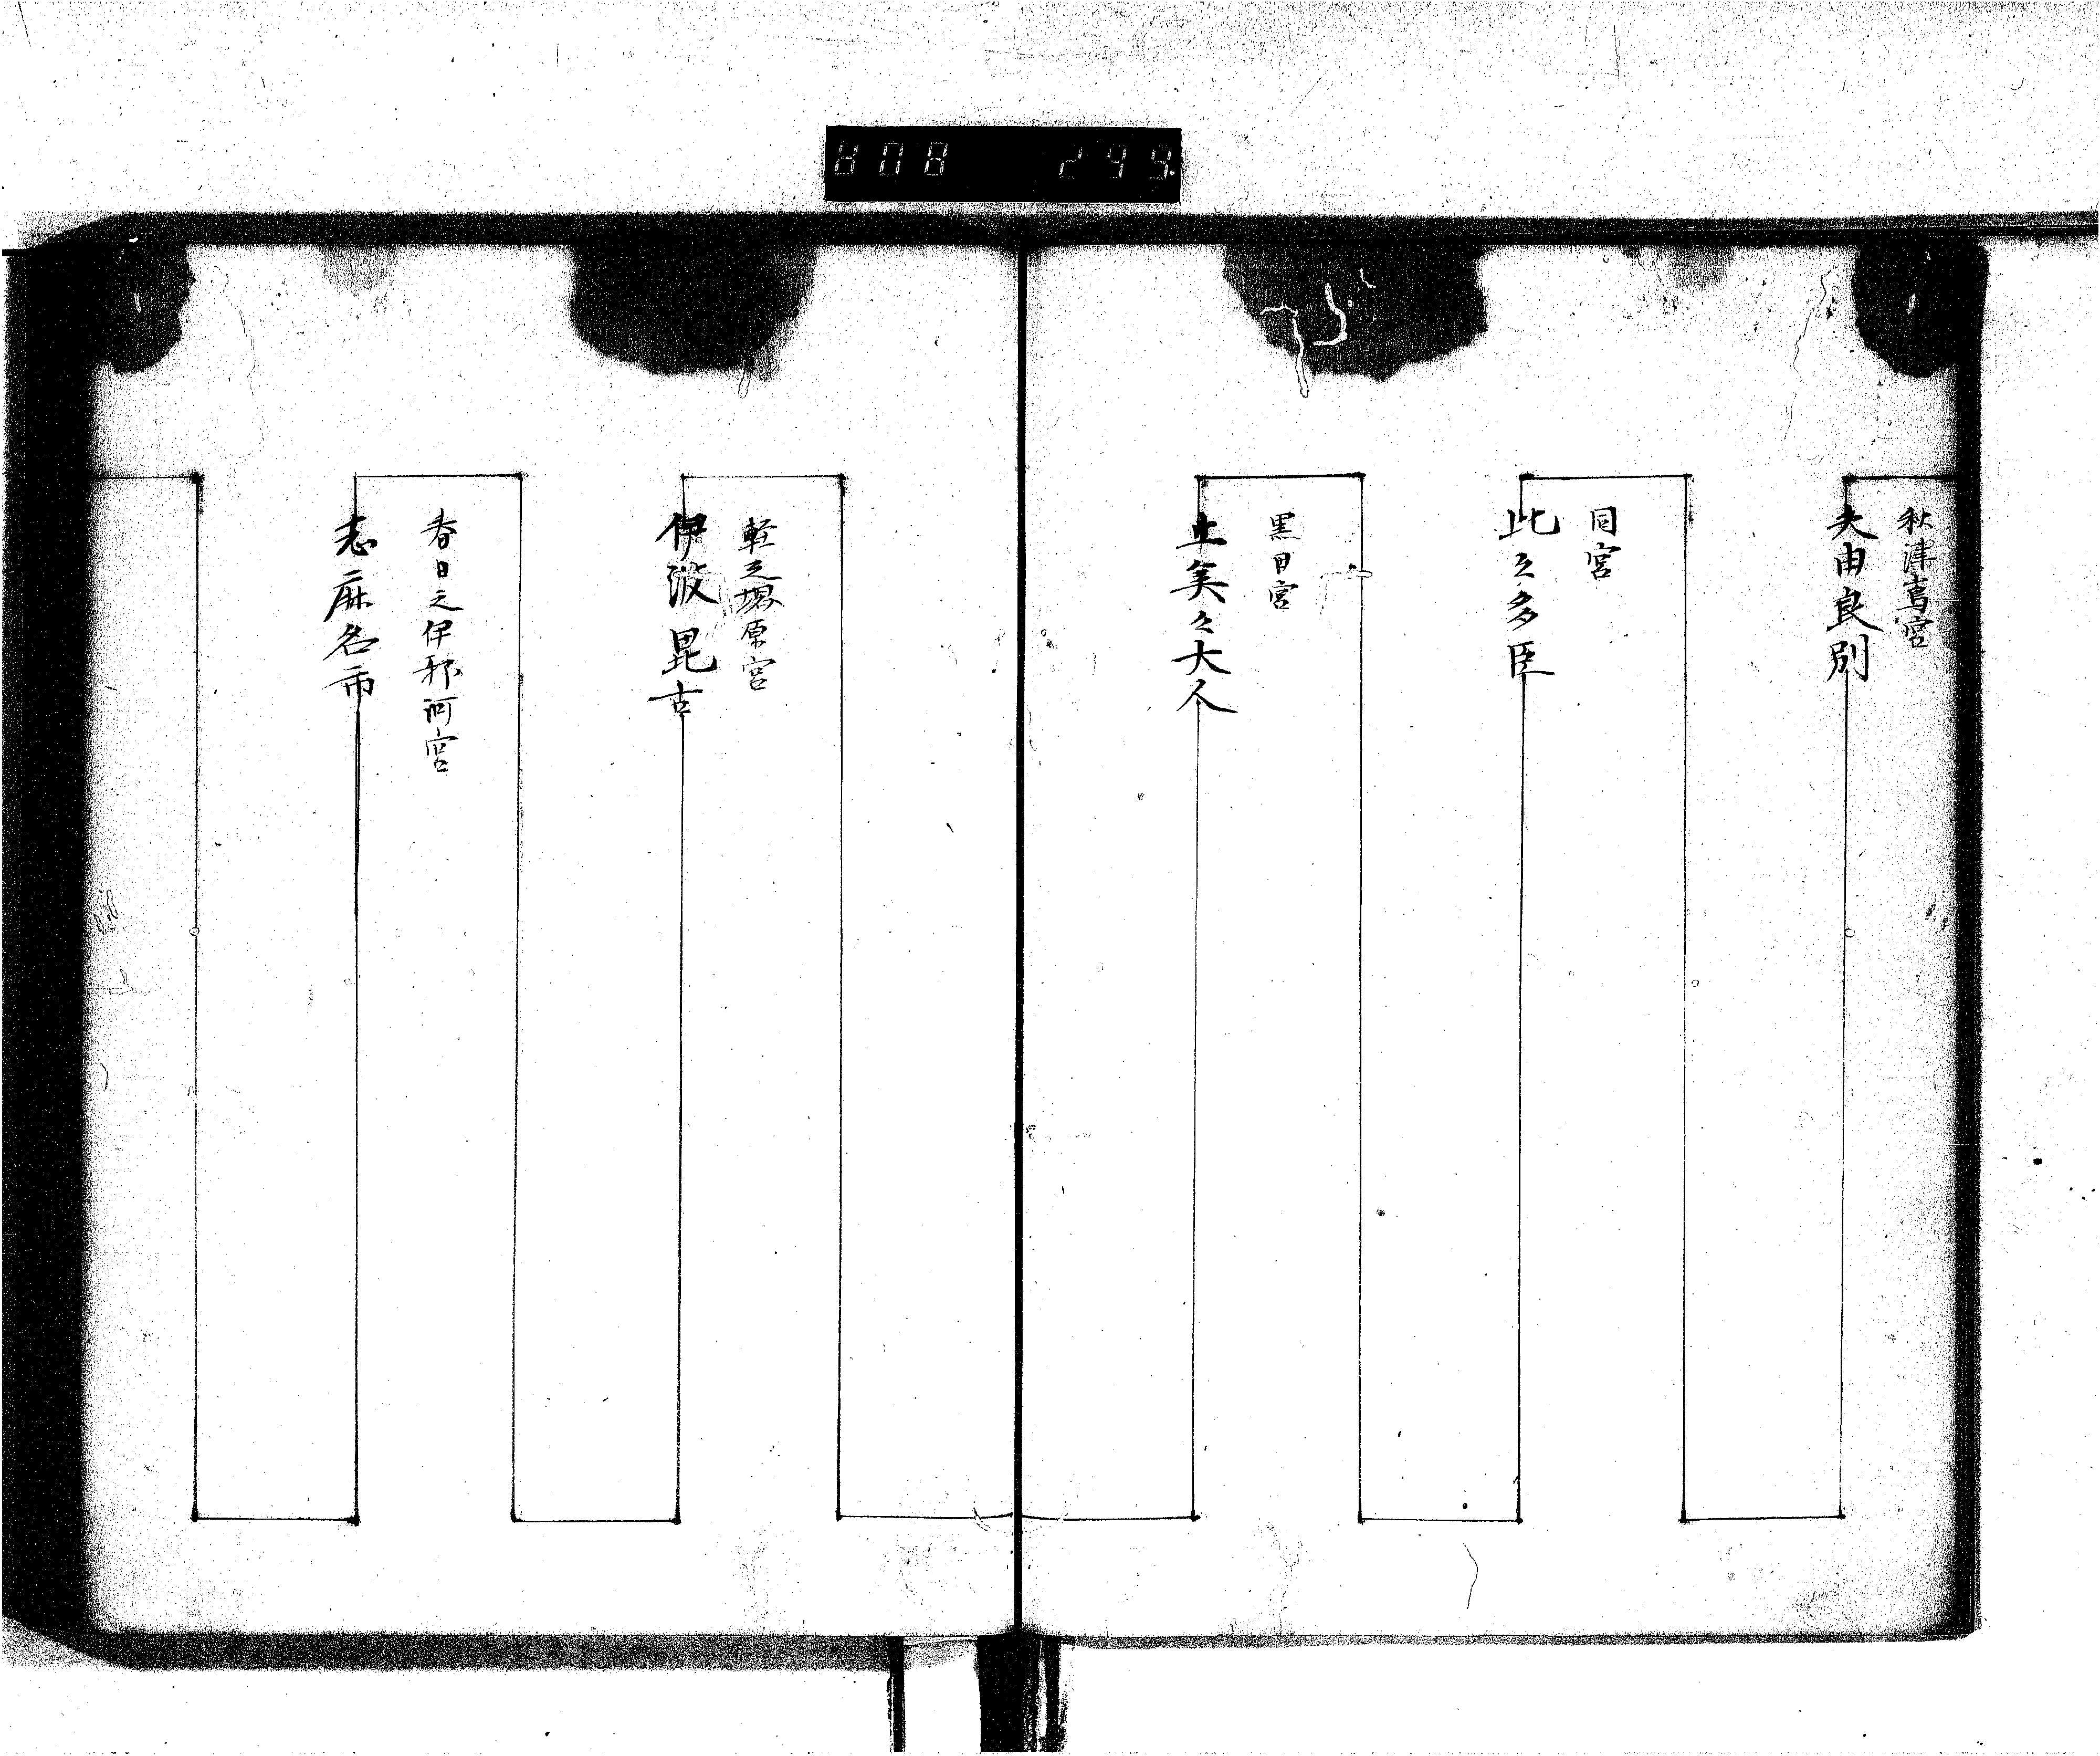 808 299
秋津嶌宮
大由良別
同宮
此々多臣
黒田宮
止美々大人
軽之堺原宮
伊波毘古
春日之伊邪河宮
志麻名市